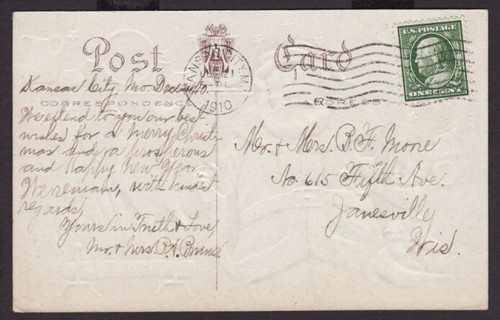 Post Card
U.S. POSTAGE
ONE CENT
KANSAS CITY, MO.
1910
CORRESPONDENCE
ADDRESS
Kansas City, Mo Dec
We extend to you our best
wishes for a Merry Christ-
mas and a prosperous
and Happy New Year.
We remain, with kindest
regards,
Yours in Truth & Love
Mr. & Mrs. P.A.
Mr. & Mrs. B.F. Moore
No. 615 Fifth Ave.
Janesville,
Wis.